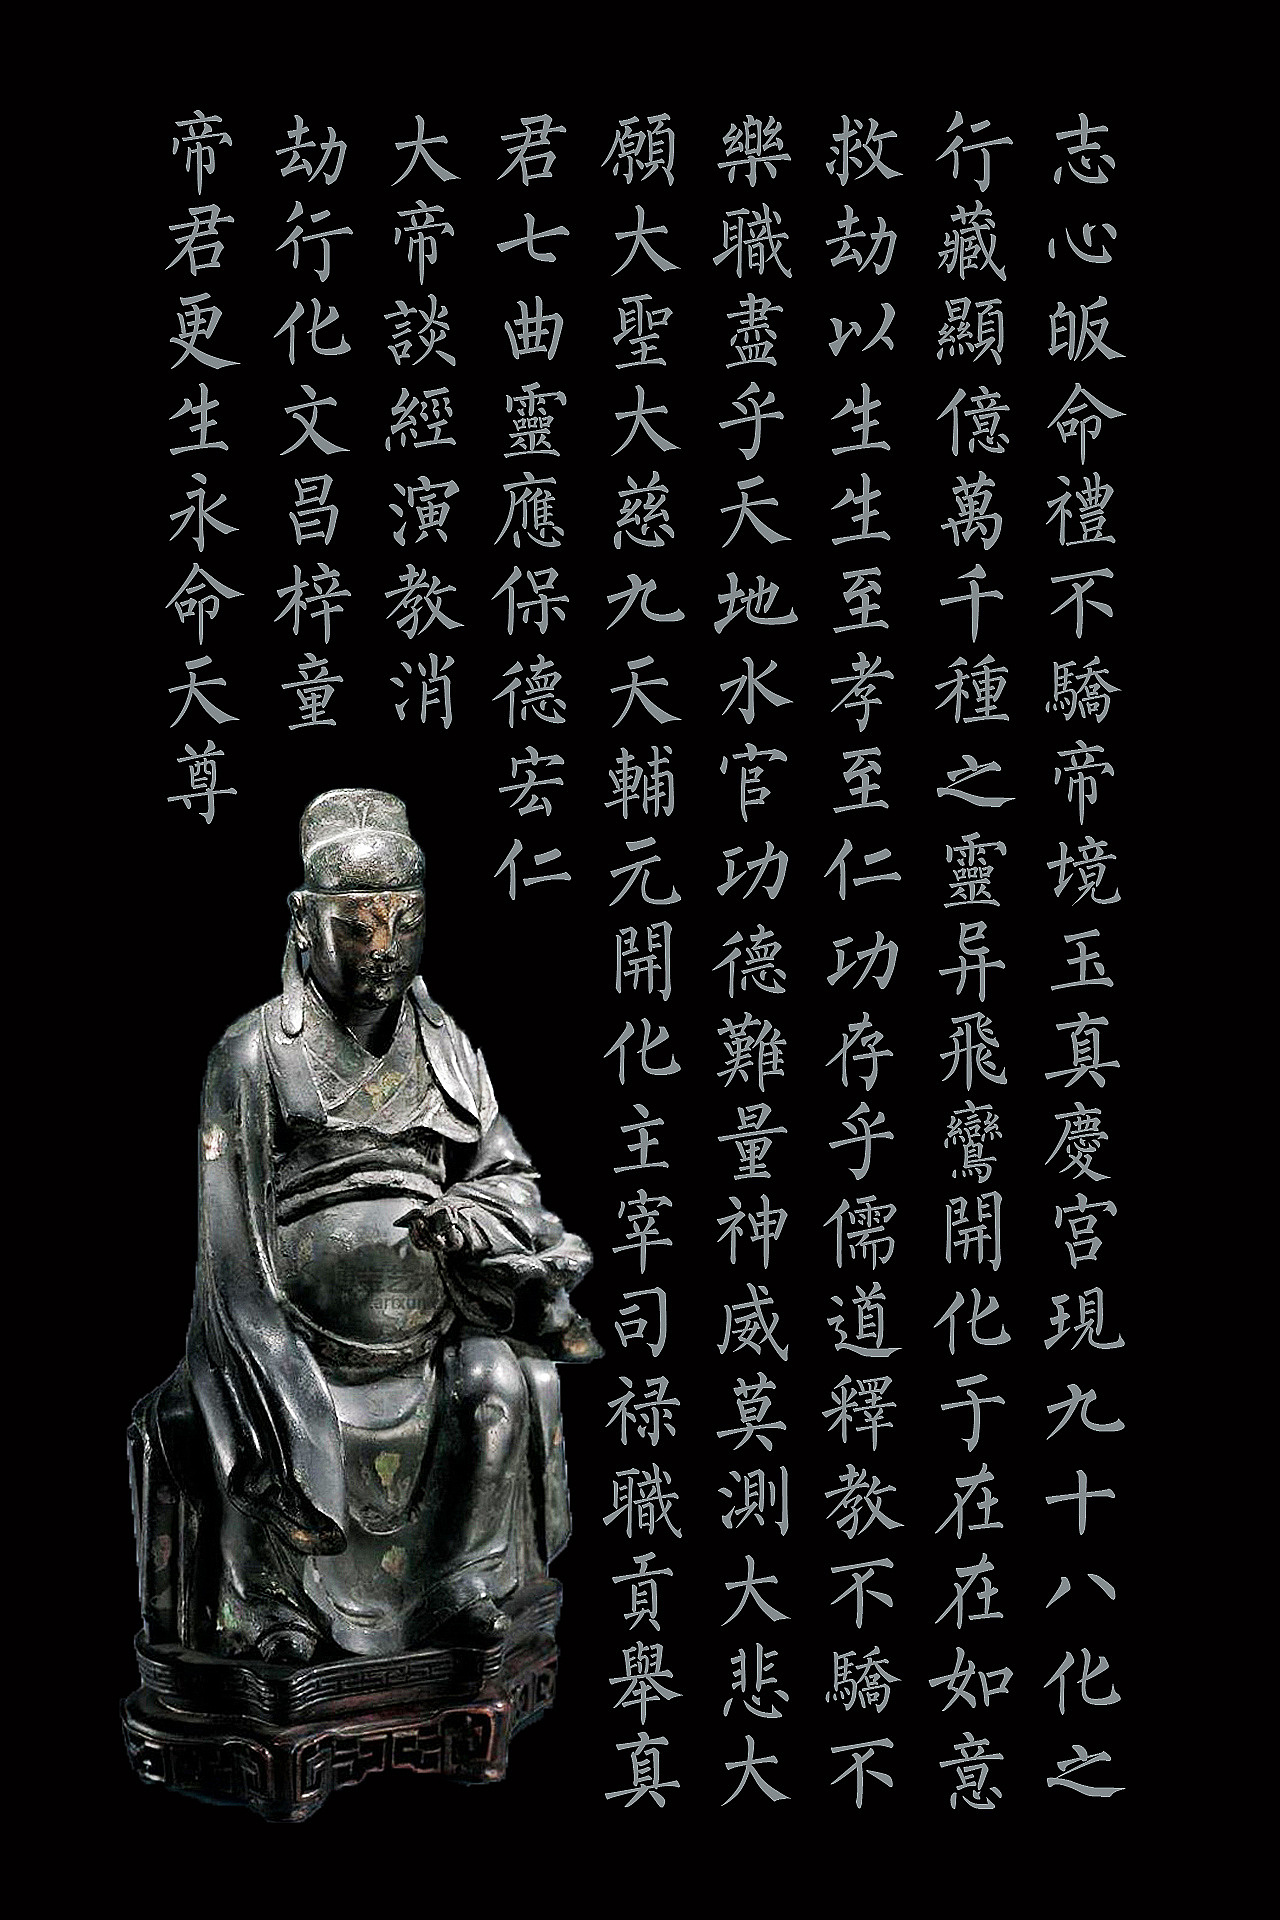 志心皈命禮不驕帝境玉真慶宮現九十八化之
行藏顯億萬千種之靈异飛鸞開化于在在如意
救劫以生生至孝至仁功存乎儒道釋教不驕不
樂職盡乎天地水官功德難量神威莫測大悲大
願大聖大慈九天輔元開化主宰司祿職貢舉真
君七曲靈應保德宏仁
大帝談經演教消
劫行化文昌梓童
帝君更生永命天尊